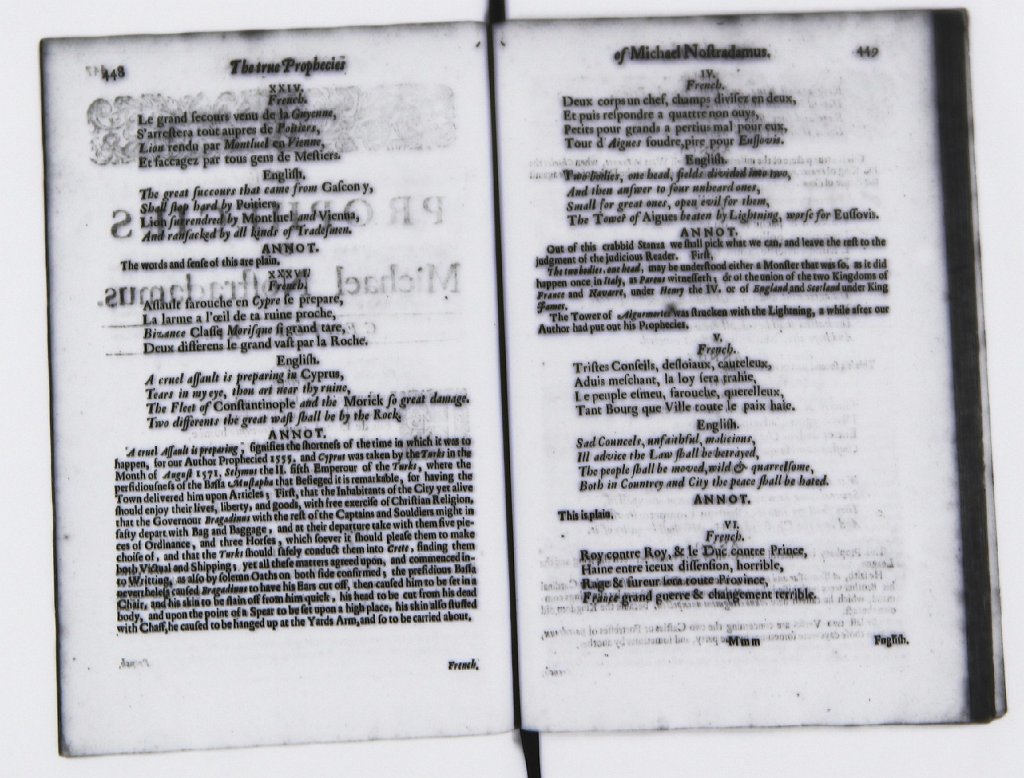 448 The true Prophecies
XXIV.
French.
Le grand ſecours venu de la Guyenne,
S'arreſtera tout aupres de Poitiers,
Lion rendu par Montluel en Vienne,
Et ſaccagez par tous gens de Meſtiers.
Engliſh.
The great ſuccours that came from Gaſcony,
Shall ſtop hard by Poitiers,
Lion ſurrendred by Montluel and Vienna,
And ranſacked by all kinds of Tradeſmen.
ANNOT.
The words and ſenſe of this are plain.
French.
Aſſault farouche en Cypre ſe prepare,
La larme a l'œil de ta ruine proche,
Bizance Claſſe Moriſque ſi grand tare,
Deux differens le grand vaſt par la Roche.
Engliſh.
A cruel aſſault is preparing in Cyprus,
Tears in my eye, thou art near thy ruine,
The Fleet of Conſtantinople and the Morick ſo great damage.
Two differents the great waſt ſhall be by the Rock.
ANNOT.
A cruel Aſſault is preparing, ſignifies the ſhortneſs of the time in which it was to
happen, for our Author Propheciéd 1555, and Cyprus was taken by the Turks in the
Month of Auguſt 1571, Selymus the II. fifth Emperour of the Turks, where the
perfidiouſneſs of the Baſſa Muſtapha that Beſieged it is remarkable, for having the
Town delivered him upon Articles; Firſt, that the Inhabitants of the City yet alive
ſhould enjoy their lives, liberty, and goods, with free exerciſe of Chriſtian Religion,
that the Governour Bragadinus with the reſt of the Captains and Souldiers might in
ſafty depart with Bag and Baggage, and at their departure take with them five pie-
ces of Ordinance, and three Horſes, which ſoever it ſhould pleaſe them to make
choiſe of, and that the Turks ſhould ſafely conduct them into Crete, finding them
both Victual and Shipping; yet all theſe matters agreed upon, and commended in-
to Writting, as alſo by ſolemn Oaths on both ſide confirmed; the perfidious Baſſa
nevertheleſs cauſed Bragadinus to have his Ears cut off, then cauſed him to be ſet in a
Chair, and his skin to be flain off from him quick, his head to be cut from his dead
body, and upon the point of a Spear to be ſet upon a high place, his skin alſo ſtuffed
with Chaff, he cauſed to be hanged up at the Yards Arm, and ſo to be carried about,
French.
of Michael Noſtradamus. 449
IV.
French.
Deux corps un chef, champs diviſez en deux,
Et puis reſpondre a quattre non ouys,
Petits pour grands a pertius mal pour eux,
Tour d'Aigues foudre, pire pour Euſſovis.
Engliſh.
Two bodies, one head, fields divided into two,
And then anſwer to four unheard ones,
Small for great ones, open evil for them,
The Tower of Aigues beaten by Lightning, worſe for Euſſovis.
ANNOT.
Out of this crabbid Stanza we ſhall pick what we can, and leave the reſt to the
judgment of the judicious Reader. Firſt,
The two bodies, one head, may be underſtood either a Monſter that was ſo, as it did
happen once in Italy, as Pareus witneſſeth; or of the union of the two Kingdoms of
France and Navarre, under Henry the IV. or of England, and Scotland under King
James.
The Tower of was ſtrucken with the Lightning, a while after our
Author had put out his Prophecies.
V.
French.
Triſtes Conſeils, deſloiaux, cauteleux,
Aduis meſchant, la loy ſera trahie,
Le peuple eſmeu, farouche, querelleux,
Tant Bourg que Ville toute le paix haie.
Engliſh.
Sad Councels, unfaithful, malicious,
Ill advice the Law ſhall be betrayed,
The people ſhall be moved, wild & quarrelſome,
Both in Countrey and City the peace ſhall be hated.
ANNOT.
This is plain.
VI.
French.
Roy contre Roy, & le Duc contre Prince,
Haine entre iceux diſſenſion, horrible,
Rage & fureur ſera toute Province,
France grand guerre & changement terrible.
Mmm Engliſh.